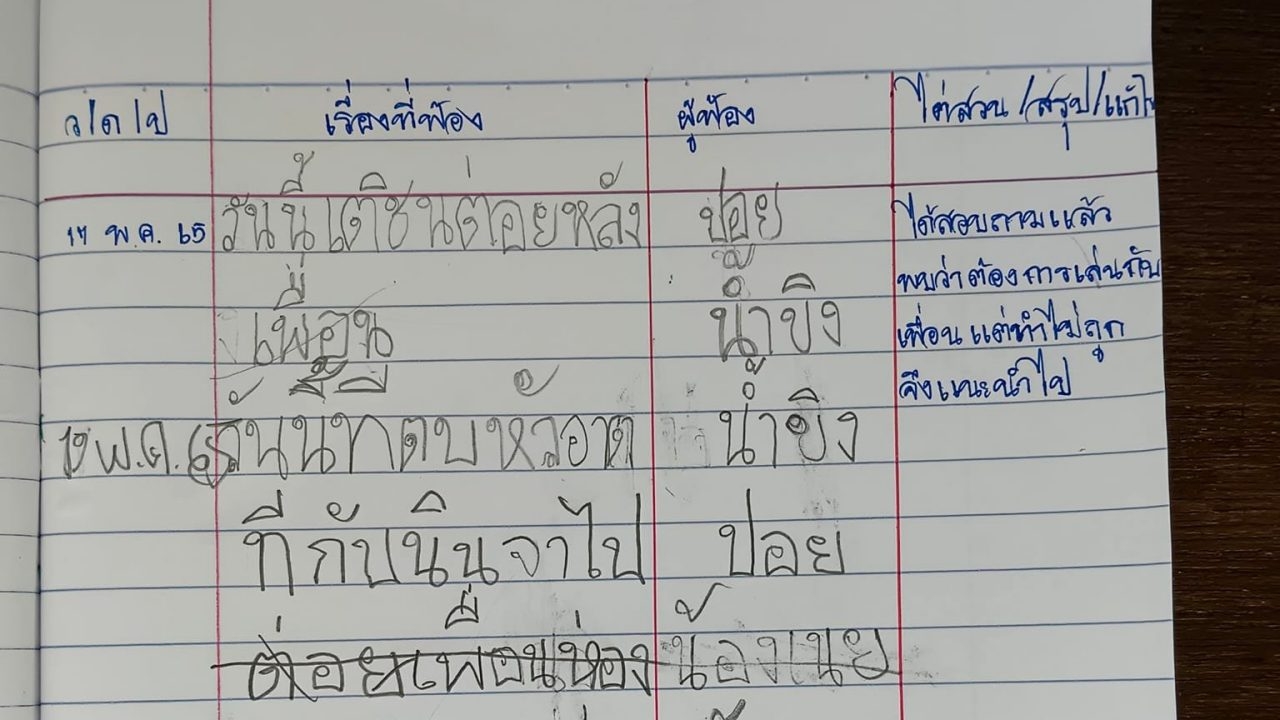 ว/ด/ป เรื่องที่ฟ้อง ผู้ฟ้อง ไต่สวน/สรุป/แก้ไข
17 พ.ค. 65 วันนี้เตชินต่อยหลัง ปอย ได้สอบถามแล้ว
พบว่าต้องการเล่นกับ
เพื่อน น้ำขิง เพื่อน แต่ทำไม่ถูก
จึงแนะนำไป
พ.ค. วันนี้ น้ำขิง
ที่กับนินจาไป ปอย
ต่อยเพื่อนห้อง น้องเนย